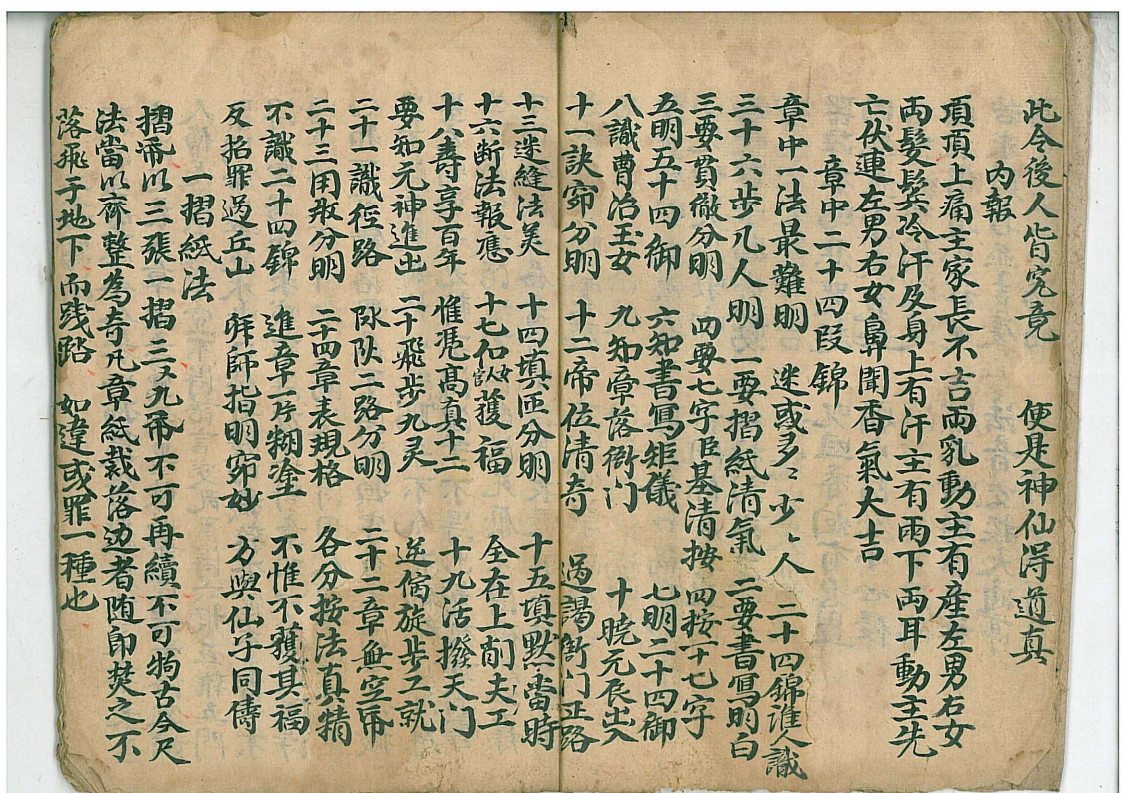 此令後人皆完竟　便是神仙淂道真
内報
項頂上痛主家長不吉兩乳動主有産左男右女
両髮鬂冷汗及身上有汗主有雨下両耳動主先
亡伏連左男右女鼻聞香氣大吉
章中二十四段錦
章中一法最難明　迷或多〻少〻人　二十四錦誰人識
三十六步凡人明　一要摺紙清氣　二要書寫明白
三要貫徹分明　四要七字臣基清按四按十七字
五明五十四御　六知書寫矩儀　七明二十四御
八識曹冶玉女　九知章落衙门　十曉元辰出入
十一訣窍分明　十二帝位清奇　過謁衙门正路
十三迷縫法美　十四填匝分明　十五填黙當時
十六断法報應　十七仙官玉女獲福　全在上削夫工
十八壽享百年　惟凴髙真十二　十九活撥天门
要知元神進出　二十飛步九灵　逆偹旋步工就
二十一識徑路　隊队二路分明　二十二章無空帋
二十三用敖分明　二十四章表規格　各分按法真精
不識二十四錦　進章一片糊塗　不惟不獲其福
反招罪過丘山　拜師指明窍妙　方與仙子同儔
一摺紙法
摺帋以三張一摺三又九帋不可再續不可狥古今尺
法當以齊整為奇凡章紙裁落边者随即焚之不
落飛于地下而践踏　如違或罪一種也